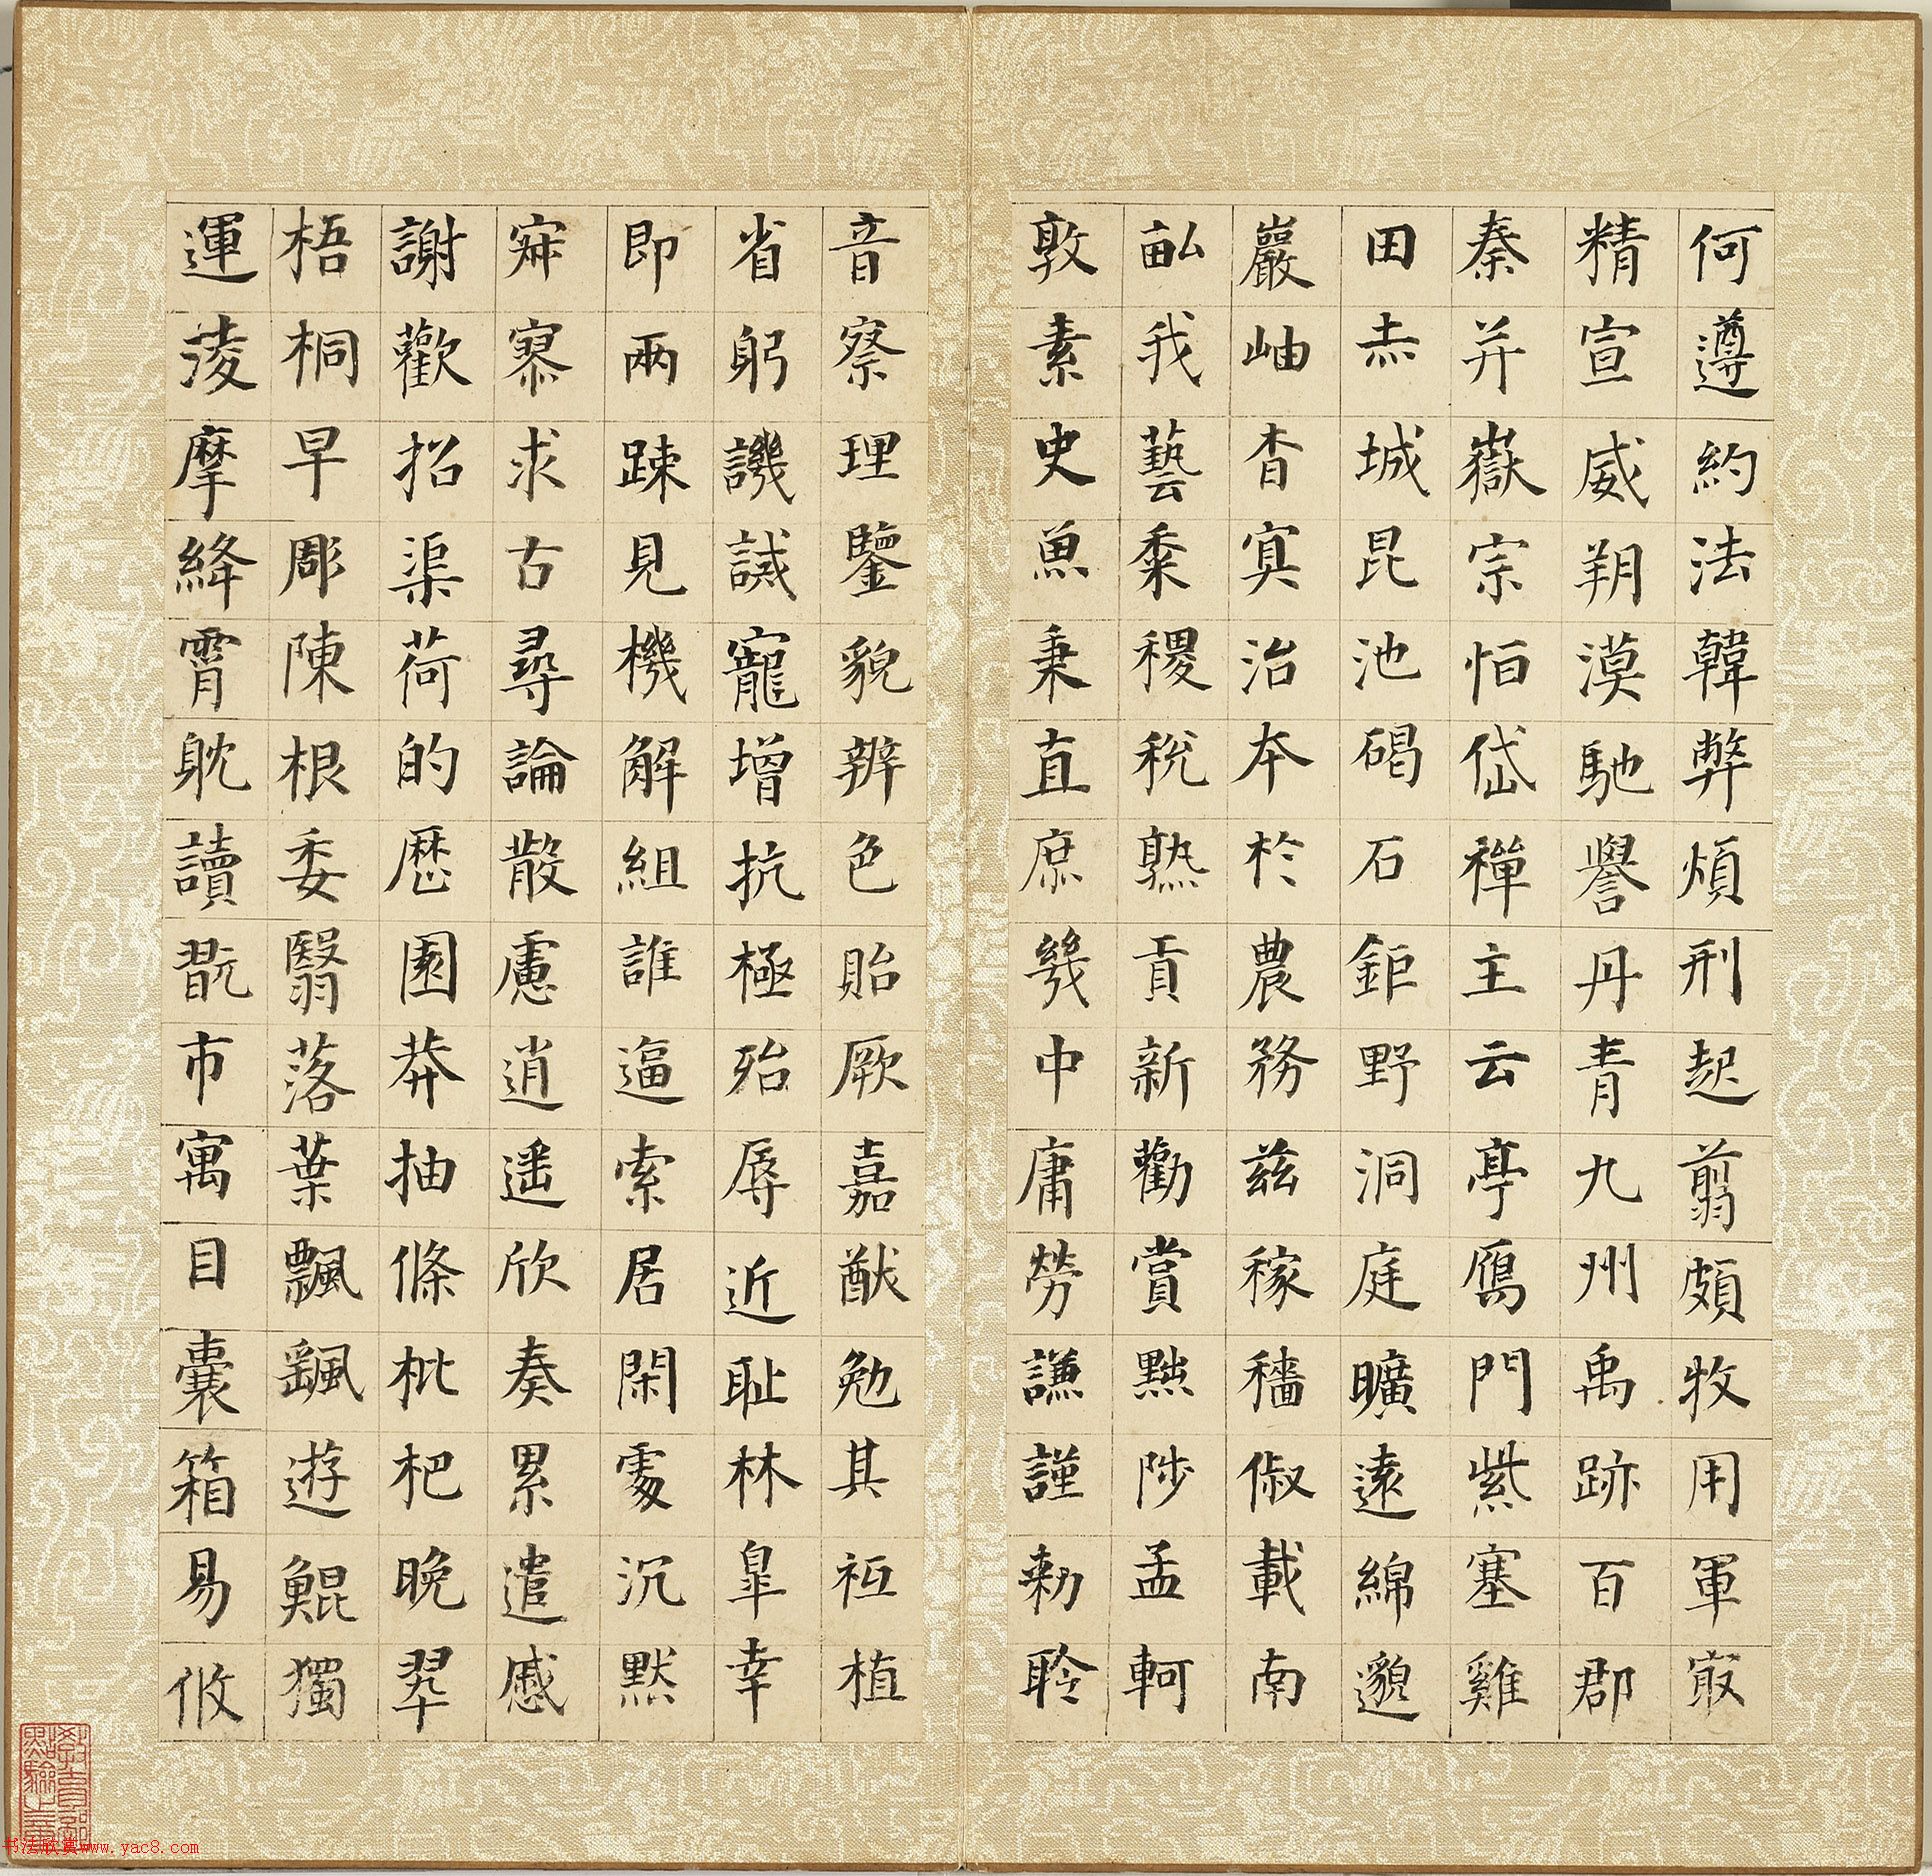 何遵約法韓弊煩刑起翦頗牧用軍冣
精宣威朔漠馳譽丹青九州禹跡百郡
秦并嶽宗恒岱禪主云亭鴈門紫塞雞
田赤城昆池碣石鉅野洞庭曠遠綿邈
巖岫杳冥治本於農務茲稼穡俶載南
畝我藝黍稷稅熟貢新勸賞黜陟孟軻
敦素史魚秉直庶幾中庸勞謙謹勑聆
音察理鑒貌辨色貽厥嘉猷勉其祗植
省躬譏誡寵增抗極殆辱近耻林皐幸
即兩踈見機解組誰逼索居閑處沉默
寂寥求古尋論散慮逍遥欣奏累遣慼
謝歡招渠荷的歷園莽抽條枇杷晚翠
梧桐早彫陳根委翳落葉飄颻遊鯤獨
運淩摩絳霄躭讀翫市寓目囊箱易攸
教育部
點驗之章
书法欣赏www.yac8.com